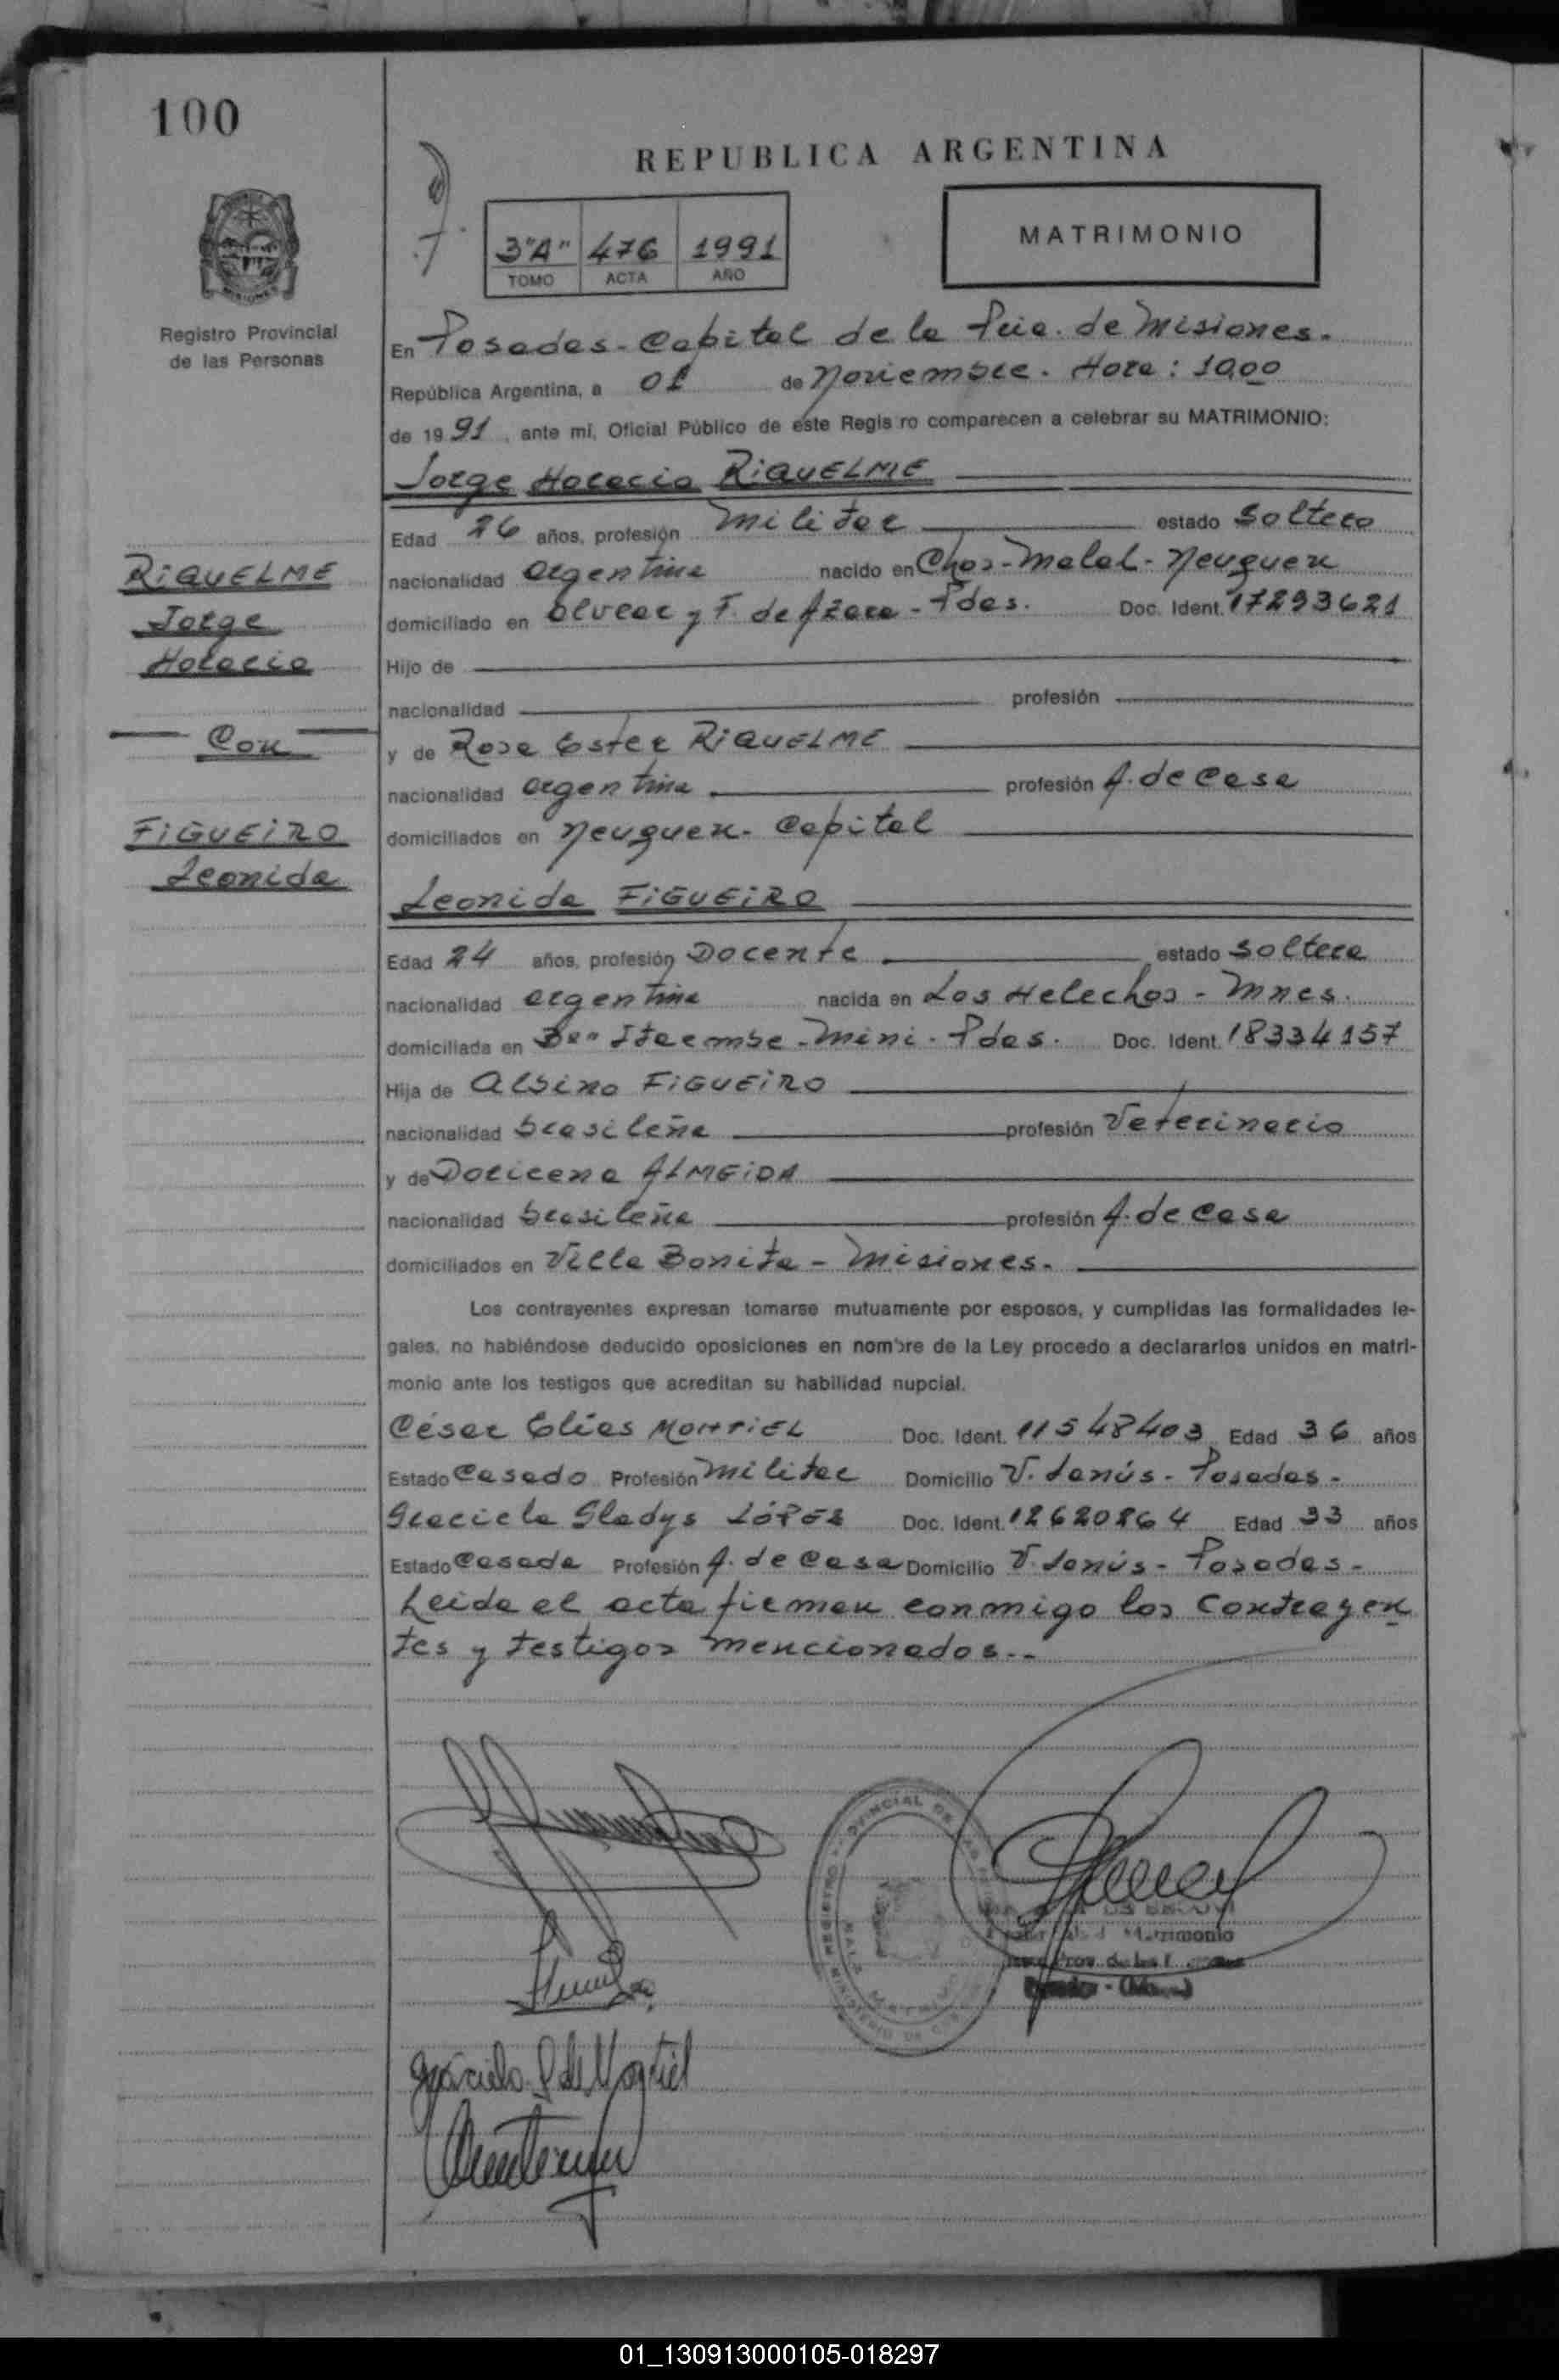 100
REPUBLICA ARGENTINA
3"A" 476 1991
TOMO ACTA AÑO
MATRIMONIO
MISIONES
Registro Provincial
de las Personas
En Posadas - Capital de la Pcia. de Misiones.
República Argentina, a 01 de Noviembre. Hora: 10,00
de 19 91, ante mí, Oficial Público de este Regis ro comparecen a celebrar su MATRIMONIO:
Jorge Horacio RIQUELME
Edad 26 años, profesión militar estado soltero
nacionalidad argentina nacido en Chos-Malal - Neuquen
domiciliado en Alvear y F. de Azara - Pdas. Doc. Ident. 17293621
Hijo de
nacionalidad profesión
y de Rosa Ester RIQUELME
nacionalidad argentina profesión A. de Casa
domiciliados en Neuquen - Capital
RIQUELME
Jorge
Horacio
Con
FIGUEIRO
Leonida
Leonida FIGUEIRO
Edad 24 años, profesión Docente estado soltera
nacionalidad argentina nacida en Los Helechos - Mnes.
domiciliada en Bº Itaembe - Mini - Pdas. Doc. Ident. 18334157
Hija de Albino FIGUEIRO
nacionalidad brasileña profesión Veterinario
y de Doricena ALMEIDA
nacionalidad brasileña profesión A. de Casa
domiciliados en Villa Bonita - Misiones.
Los contrayentes expresan tomarse mutuamente por esposos, y cumplidas las formalidades le-
gales, no habiéndose deducido oposiciones en nombre de la Ley procedo a declararlos unidos en matri-
monio ante los testigos que acreditan su habilidad nupcial.
César Elías MONTIEL Doc. Ident. 11548403 Edad 36 años
Estado Casado Profesión Militar Domicilio V. Lanús - Posadas -
Graciela Gladys LÓPEZ Doc. Ident. 12620864 Edad 33 años
Estado Casada Profesión A. de Casa Domicilio V. Lanús - Posadas -
Leida el acta firman conmigo los Contrayen
tes y testigos mencionados..
Matrimonio
Prov. de las
Graciela L de Montiel
01_130913000105-018297